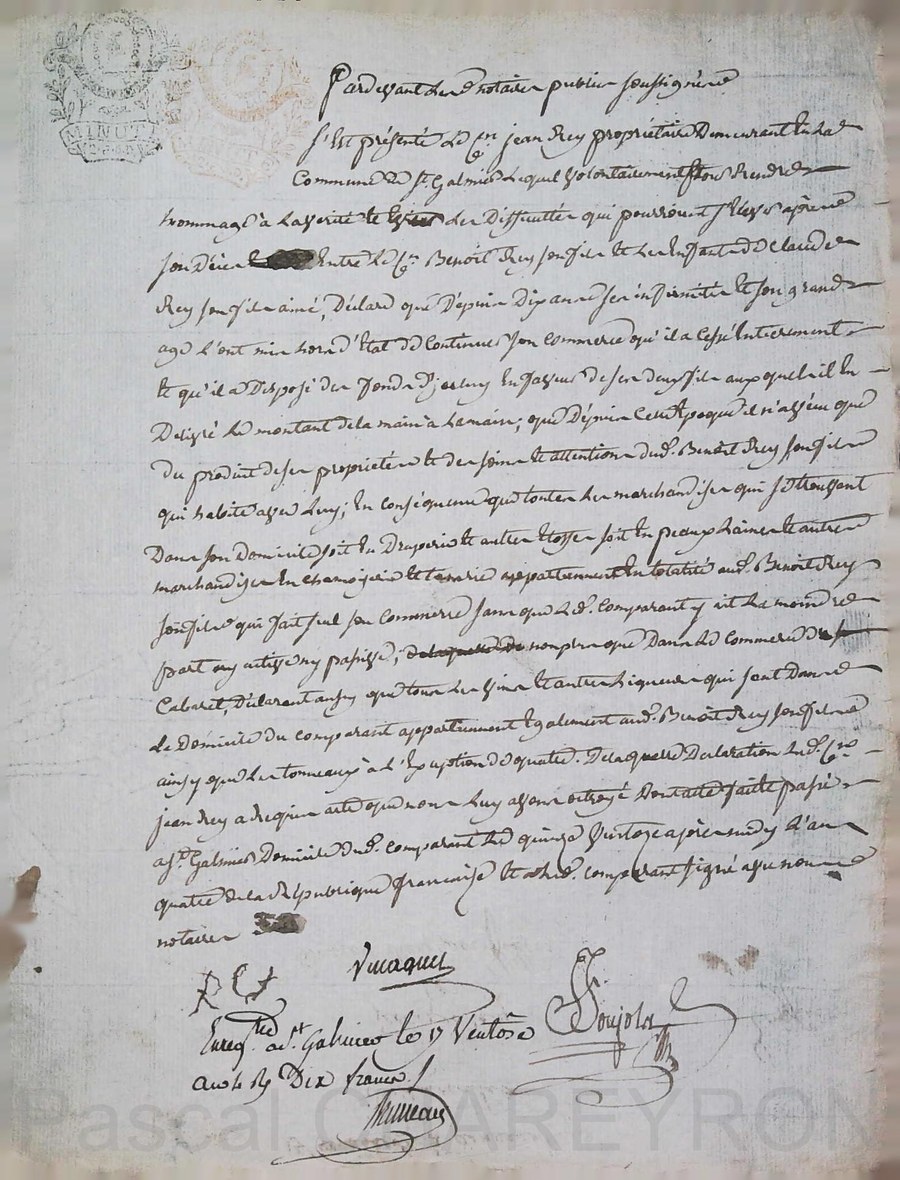 MINUTE
Pardevant les notaires publics soussignés
s'est présenté le c.en jean Rey propriétaire demeurant en la
Commune de St. Galmier lequel volontairement pour rendre
hommage à la verité et les difficultés qui pourroient s'elever après
son décès entre le c.en Benoit Rey son fils et les enfants de Claude
Rey son fils ainé, Déclare que depuis dix ans ses infirmités et son grand
age l'ont mis hors d'état de continuer son commerce qu'il a cessé entierement
et qu'il a disposé des fonds d'jceluy en faveur de ses deux fils auxquels il en
a délivré le montant de la main à la main; que depuis cette époque il n'a vécu que
du produit de ses propriétés et des soins et attentions dud. Benoit Rey son fils
qui habite avec luy; en conséquence que toutes les marchandises qui se trouvent
dans son domicile soit en draperie et autres étoffes soit en peaux laines et autres
marchandises en chamoiserie et tanerie appartiennent en totalité aud. Benoit Rey
son fils qui fait seul son commerce sans que led. comparant y ait la moindre
part ny active ny passive, non plus que dans le commerce de
Cabaret, déclarant aussy que tous les vins et autres liqueurs qui sont dans
le domicile du comparant appartiennent également aud. Benoit Rey son fils
ainsy que les tonneaux à l'exception de quatre. De laquelle déclaration led. c.en
jean Rey a requis acte que nous luy avons octroyé Dont acte fait et passé
a St. Galmier domicile dud. comparant le quinze ventose après midy l'an
quatre de la République française et a led. comparant signé avec nous
notaires
REY
Enreg.tré a St Galmier le 17 Ventôse
an 4 Dix francs
Pascal CHAREYRON